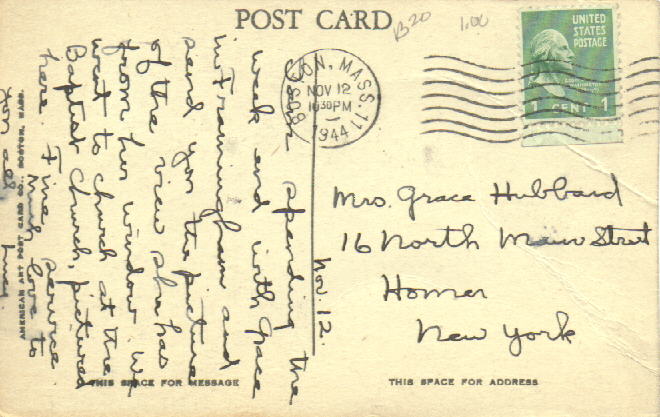 POST CARD
B20
1.00
UNITED
STATES
POSTAGE
1 CENT 1
BOSTON, MASS. 11
NOV 12
10 30 PM
1944
Nov. 12.
spending the
week end with Grace
in Framingham and
send you the picture
of the view she has
from her window. We
went to church at the
Baptist Church, pictured
here. Fine service
Much love to
you all
Mrs. Grace Hubbard
16 North Main Street
Homer
New York
AMERICAN ART POST CARD CO., BOSTON, MASS.
THIS SPACE FOR MESSAGE
THIS SPACE FOR ADDRESS